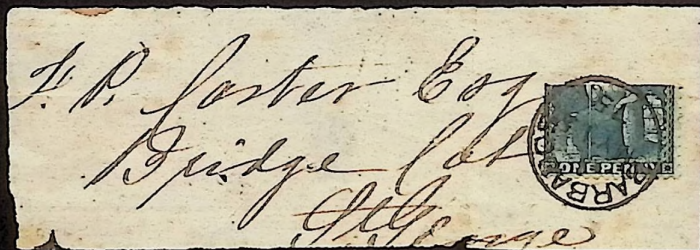 F. P. Carter Esq
Bridge Cot
St George
ONE PENNY
BARBADOS